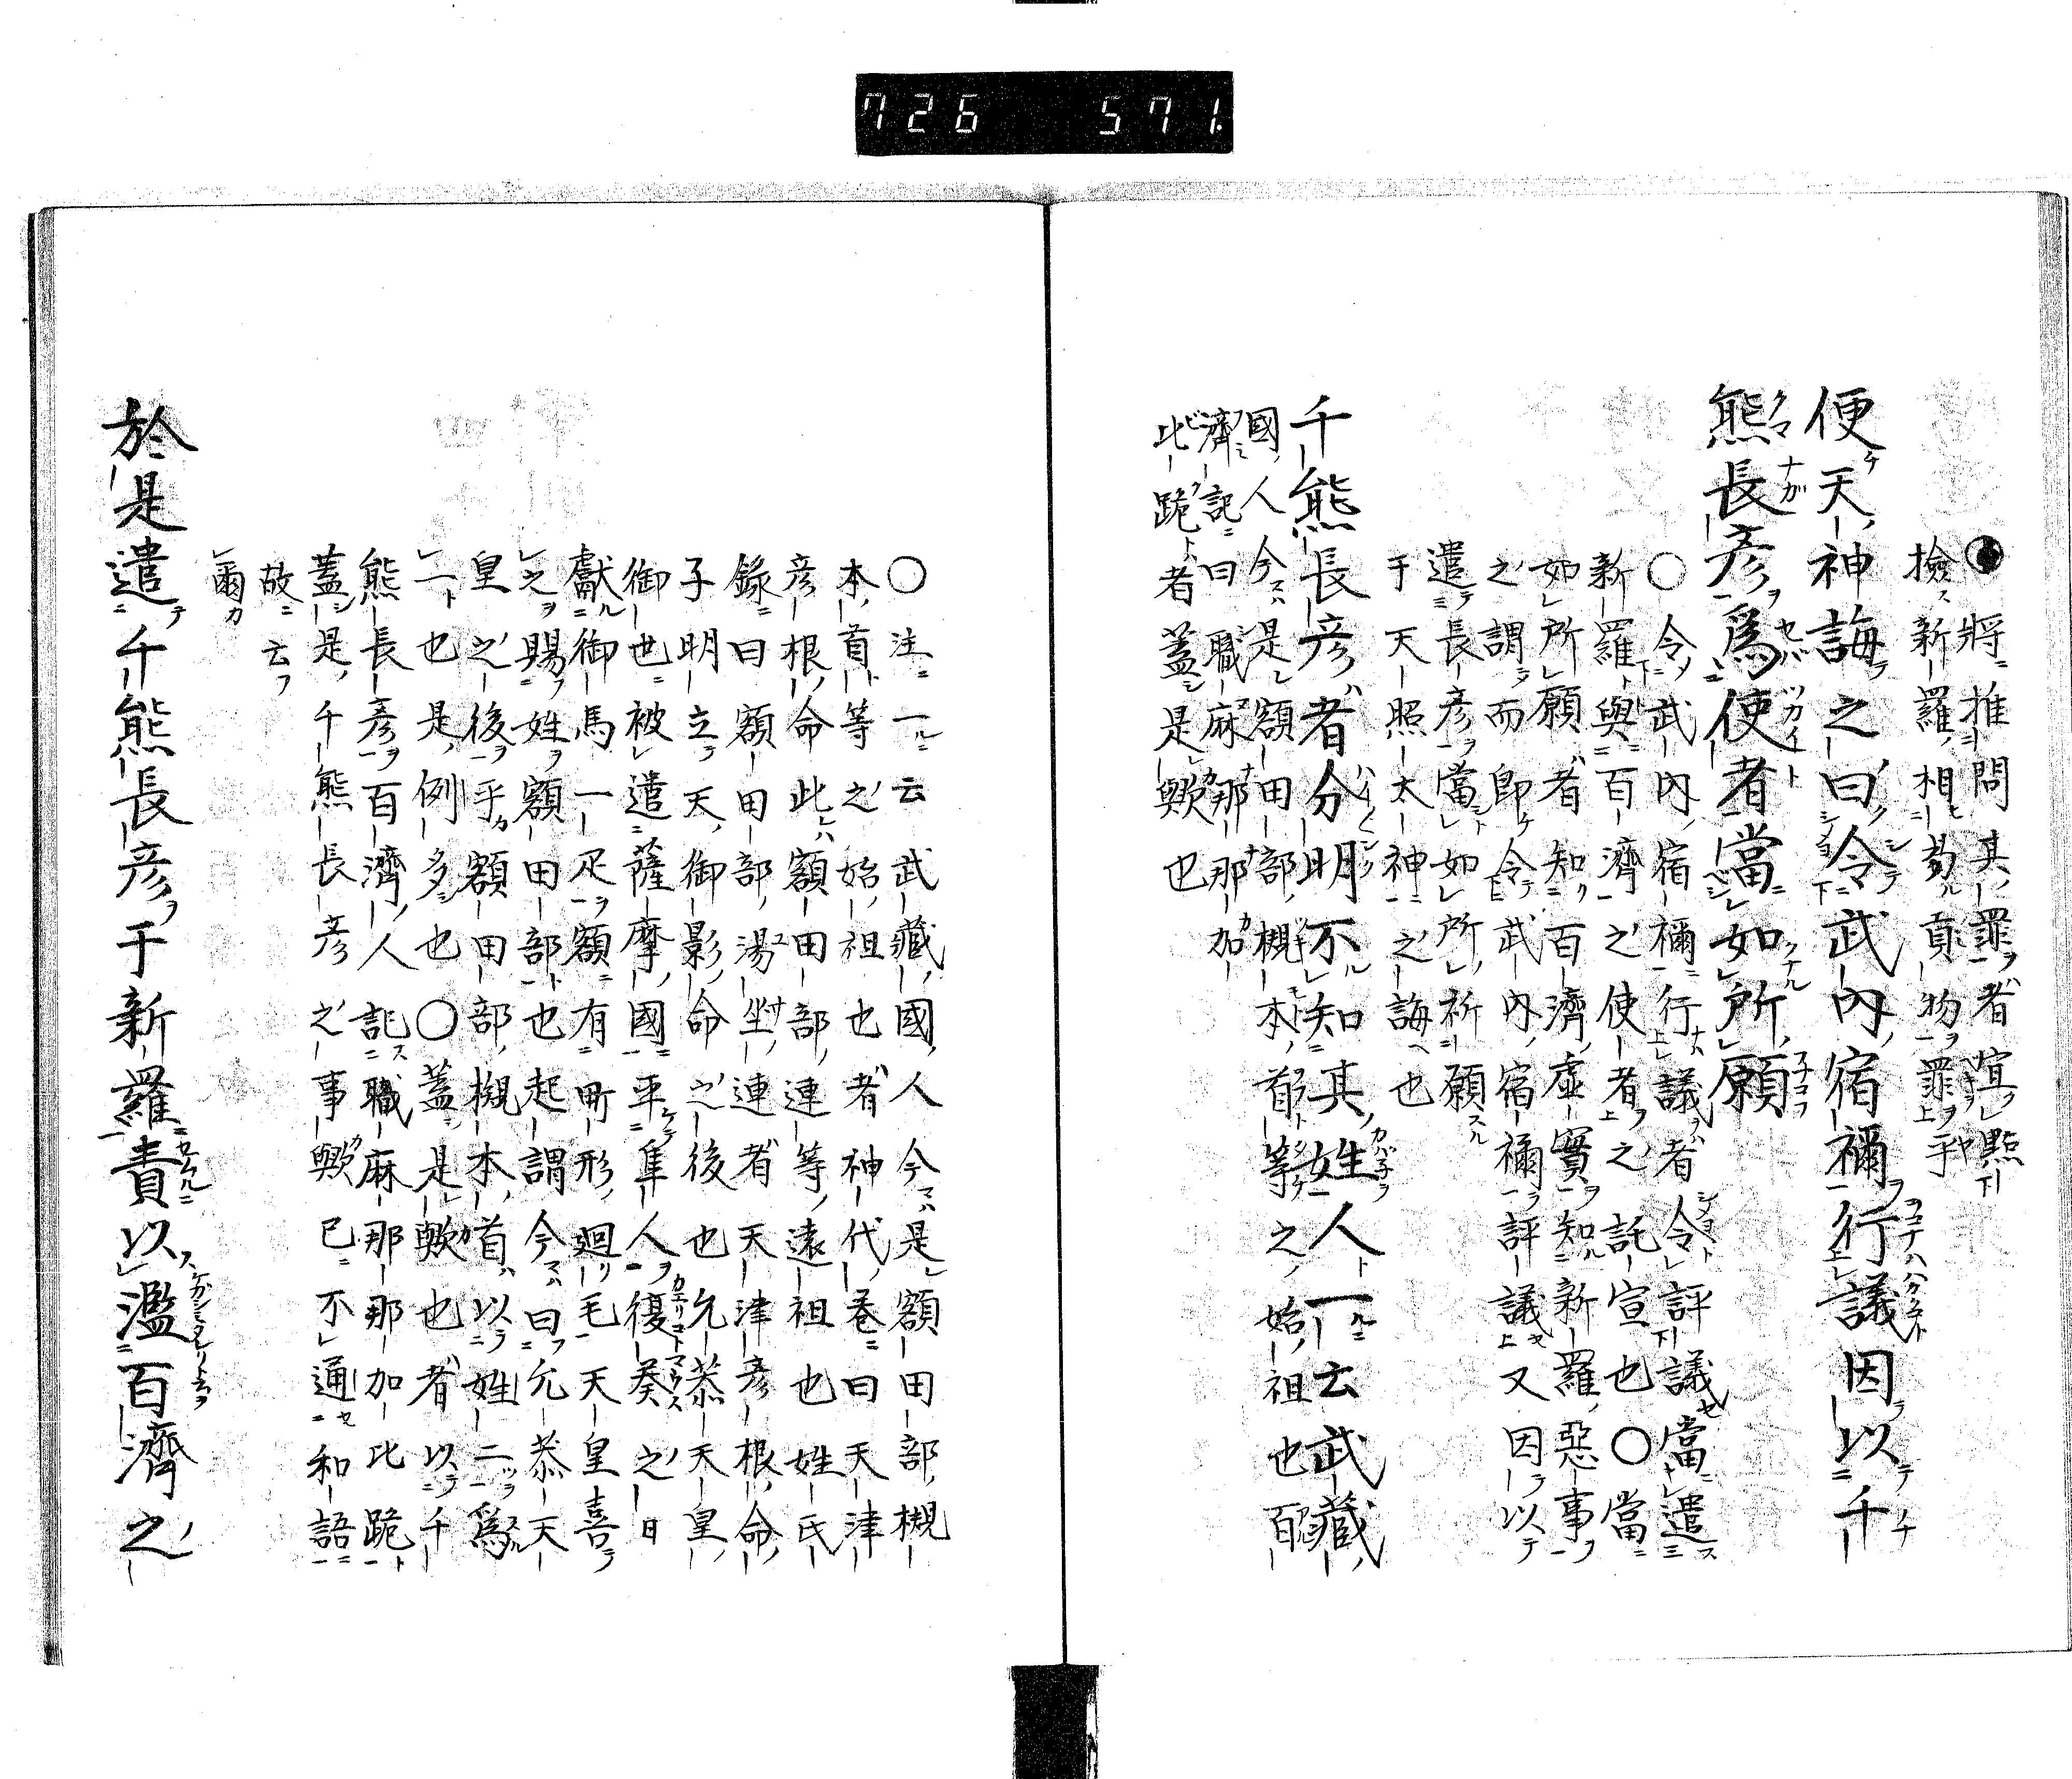 726 571.
將推問其罪者宜點
撿新羅相易貢物罪乎
便天神誨之曰令武內宿禰行議因以千
熊長彦爲使者當如所願
○令武內宿禰行議者令評議當遣
新羅與百濟之使者之託宣也○當
如所願者知百濟虛實知新羅惡事
之謂而卽令武內宿禰評議又因以
遣長彦當如所祈願
于天照太神之誨也
千熊長彦者分明不知其姓人一云武藏
國人今是額田部槻本首等之始祖也百
濟記曰職麻那那加
比跪者蓋是歟也
○注一云武藏國人今是額田部槻
本首等之始祖也者神代卷曰天津
彦根命此額田部連等遠祖也姓氏
錄曰額田部湯坐連者天津彦根命
子明立天御影命之後也允恭天皇
御世被遣薩摩國平隼人復奏之日
獻御馬一疋額有町形廻毛天皇喜
之賜姓額田部也起謂今曰允恭天
皇之後乎額田部槻本首以姓二爲
一也是例多也○蓋是歟也者以千
熊長彦百濟人訛職麻那那加比跪
蓋是千熊長彦之事歟已不通和語
故云
爾
於是遣千熊長彦于新羅責以濫百濟之